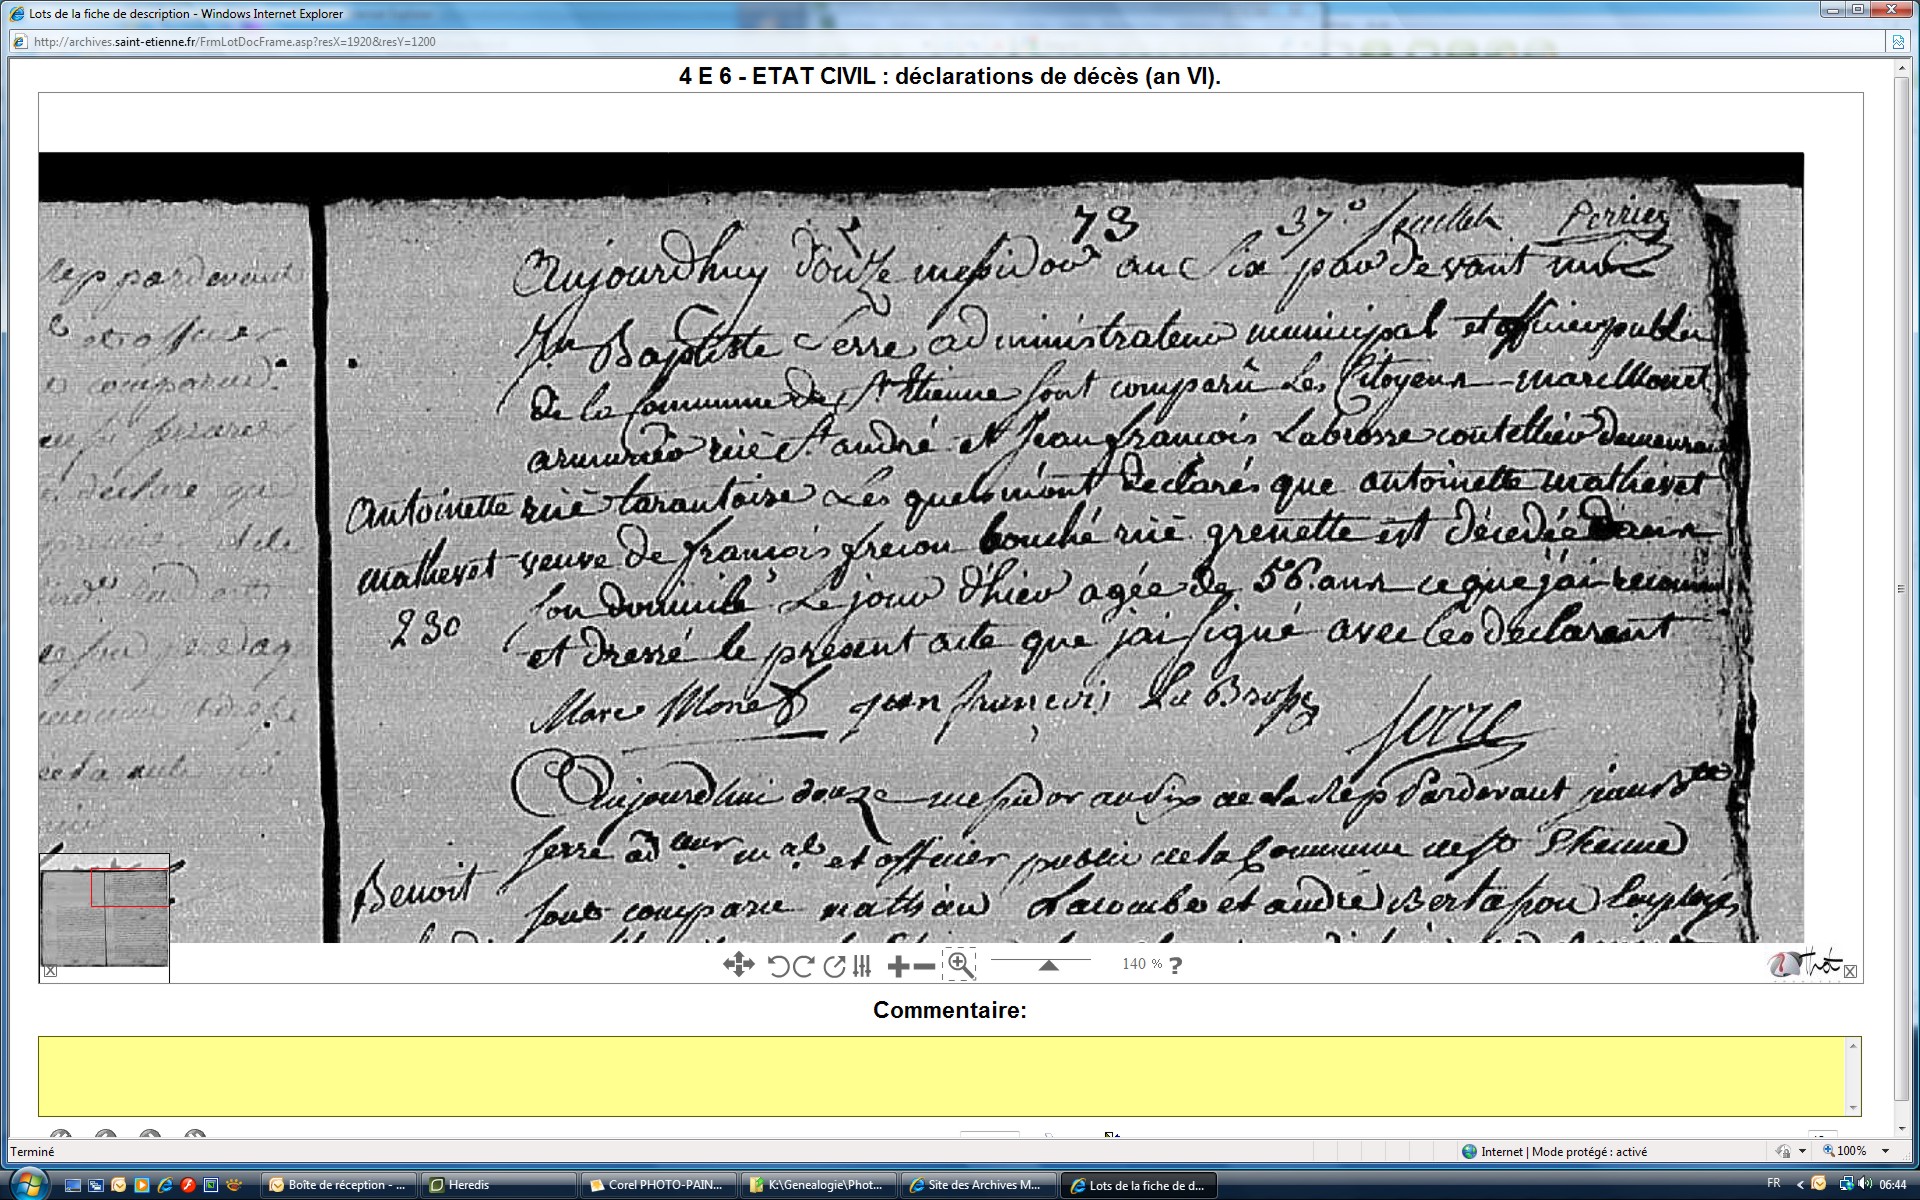 Lots de la fiche de description - Windows Internet Explorer
http://archives.saint-etienne.fr/FrmLotDocFrame.asp?resX=1920&resY=1200
4 E 6 - ETAT CIVIL : déclarations de décès (an VI).
73 37e feuillet Perrier
Aujourdhuy douze messidor an Six par devant moi
Jn Baptiste Serre administrateur municipal et officier public
de la Commune de St Etienne sont comparû Les Citoyens marc Monet
armurier rüe St andré et Jean françois Labrosse coutellier demeurant
rüe tarantaise Les quels m'ont declarés que antoinette mathevet
veuve de françois frecon bouché rüe grenette est décedée dans
son domicile Le jour d'hier agée de 56 ans ce que j'ai reconnu
et dressé le present acte que j'ai signé avec les declarant
Antoinette
mathevet
230
Marc Monet jean françois La Brosse Serre
Aujourdhui douze messidor an six de la rep Pardevant jean Bte
serre adeur mal et officier public de la Commune de St Etienne
sont comparu mathieu Lacombe et andré Bertapon Employés
Benoit
rep pardevant
et officier
comparu
declare que
140 % ?
Commentaire:
Terminé
Internet | Mode protégé : activé
100%
Boîte de réception - ...
Heredis
Corel PHOTO-PAIN...
K:\Genealogie\Phot...
Site des Archives M...
Lots de la fiche de d...
FR
06:44